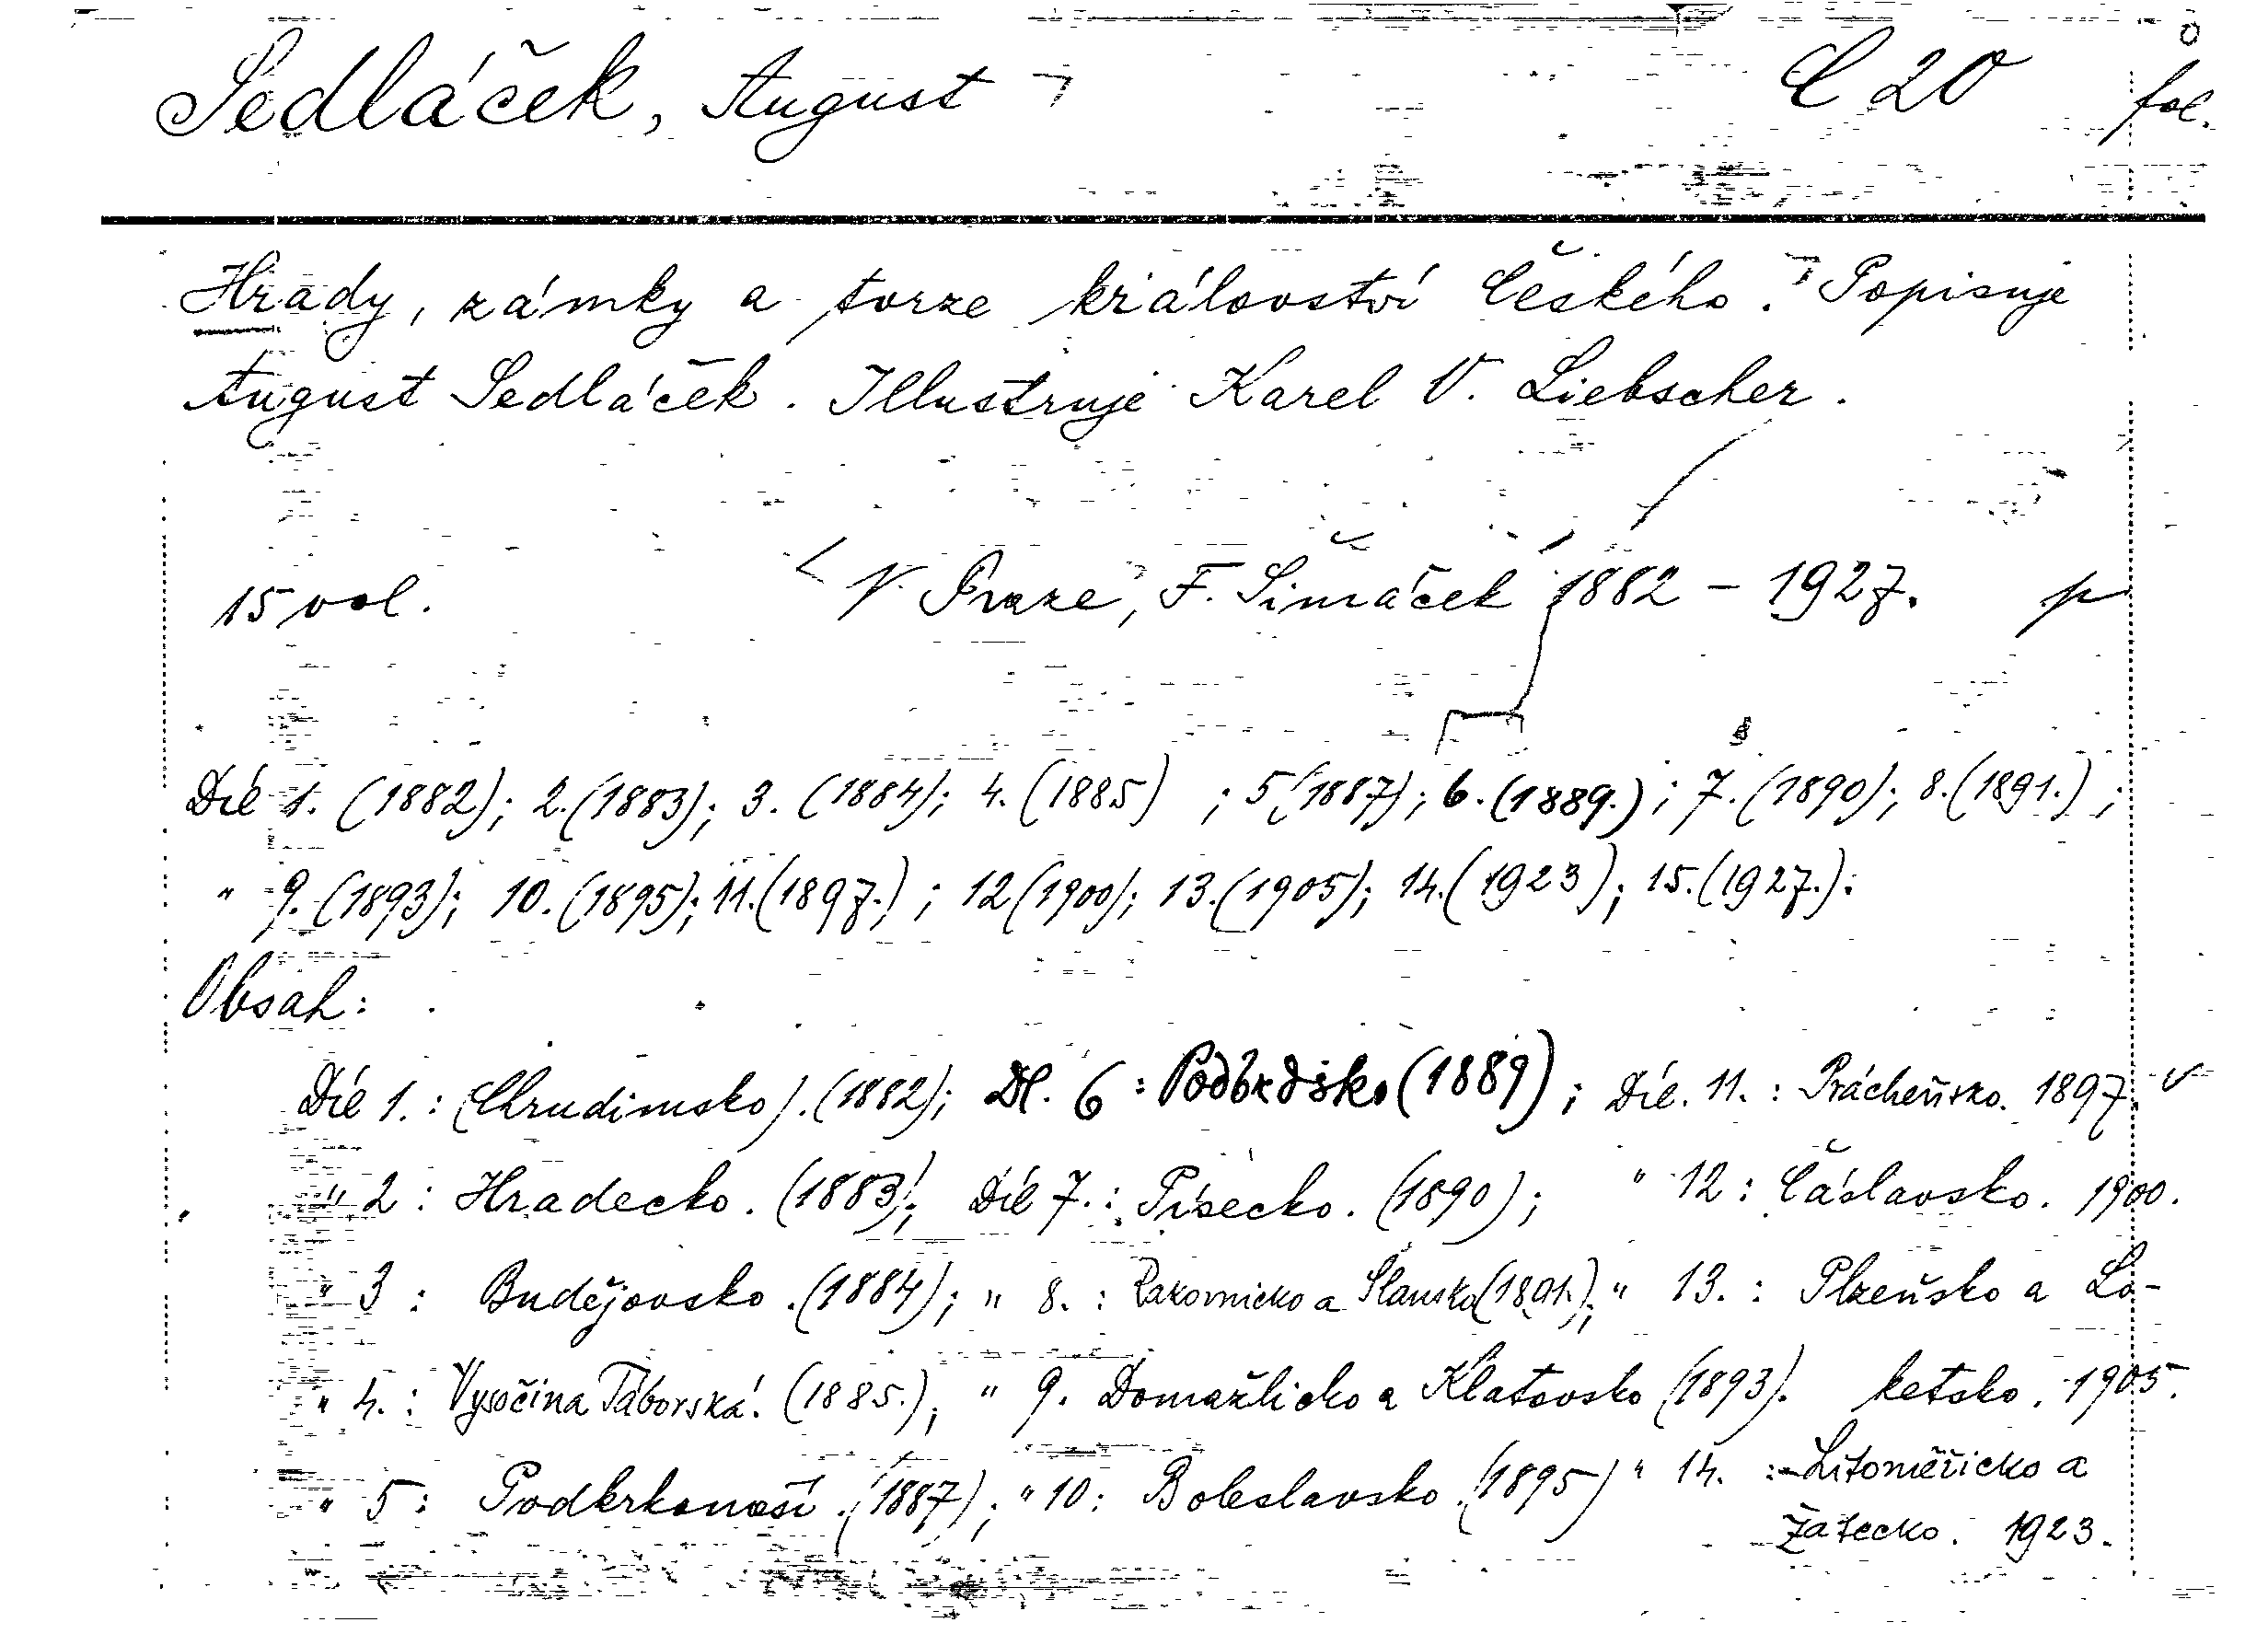 Sedláček, August C 20 fol.
Hrady, zámky a tvrze království Českého. Popisuje
August Sedláček. Illustruje Karel V. Liebscher.
15 vol. V Praze, F. Šimáček 1882 – 1927. p
Díl 1. (1882); 2. (1883); 3. (1884); 4. (1885) ; 5 (1887); 6. (1889.); 7. (1890); 8. (1891.);
" 9. (1893); 10. (1895); 11. (1897.); 12 (1900); 13. (1905); 14. (1923); 15. (1927.):
Obsah:
Díl 1. : (Chrudimsko). (1882); Dl. 6 : Podbrdsko (1889); Díl. 11. : Prácheňsko. 1897.
" 2 : Hradecko. (1883); Díl 7. : Písecko. (1890); " 12 : Čáslavsko. 1900.
" 3 : Budějovsko. (1884); " 8. : Rakovnicko a Slansko (1891.); " 13. : Plzeňsko a Lo-
" 4. : Vysočina Táborská. (1885.); " 9. Domažlicko a Klatovsko (1893). ketsko. 1905.
" 5 : Podkrkonoší. (1887); " 10 : Boleslavsko. (1895) " 14. : Litoměřicko a
Žatecko. 1923.